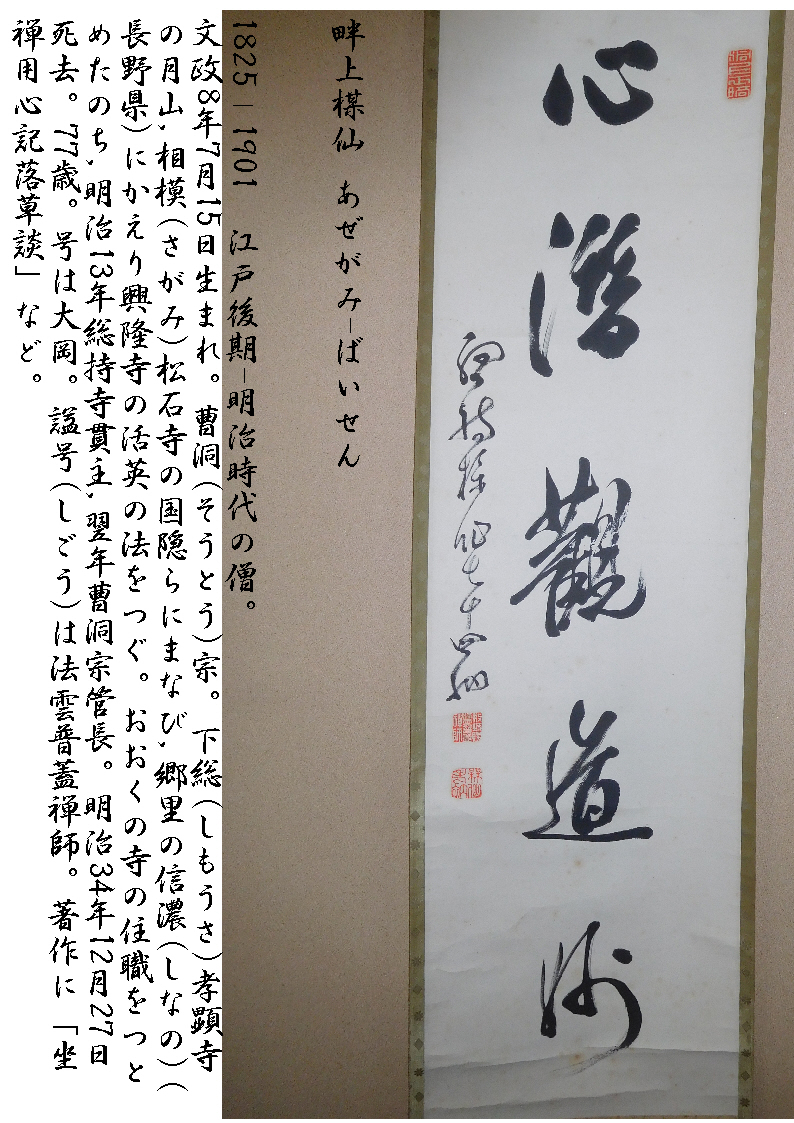 心潛觀道妙
總持楳仙七十四
畔上楳仙　あぜがみ-ばいせん
1825-1901　江戸後期-明治時代の僧。
文政8年7月15日生まれ。曹洞(そうとう)宗。下総(しもうさ)孝顕寺
の月山,相模(さがみ)松石寺の国隠らにまなび,郷里の信濃(しなの)(
長野県)にかえり興隆寺の活英の法をつぐ。おおくの寺の住職をつと
めたのち,明治13年総持寺貫主,翌年曹洞宗管長。明治34年12月27日
死去。77歳。号は大岡。諡号(しごう)は法雲普蓋禅師。著作に「坐
禅用心記落草談」など。